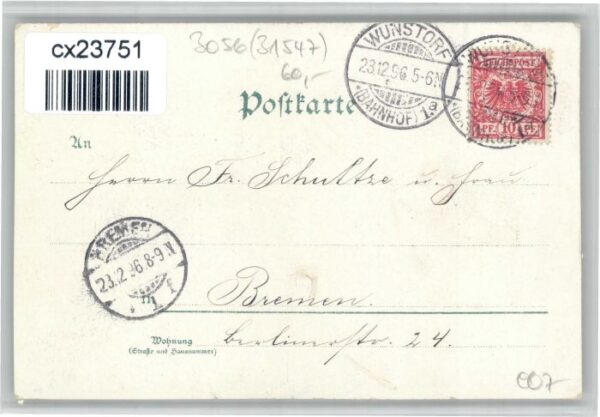 cx23751
3056 (31547)
60,-
WUNSTORF
23.12.96 5-6N
(BAHNHOF) 1a
REICHSPOST
PF. 10 PF.
Postkarte
An
Herrn Fr. Schultze u. Frau
BREMEN
23.12.96.8-9N
1 f
Bremen.
Wohnung
(Straße und Hausnummer)
Berlinerstr. 24.